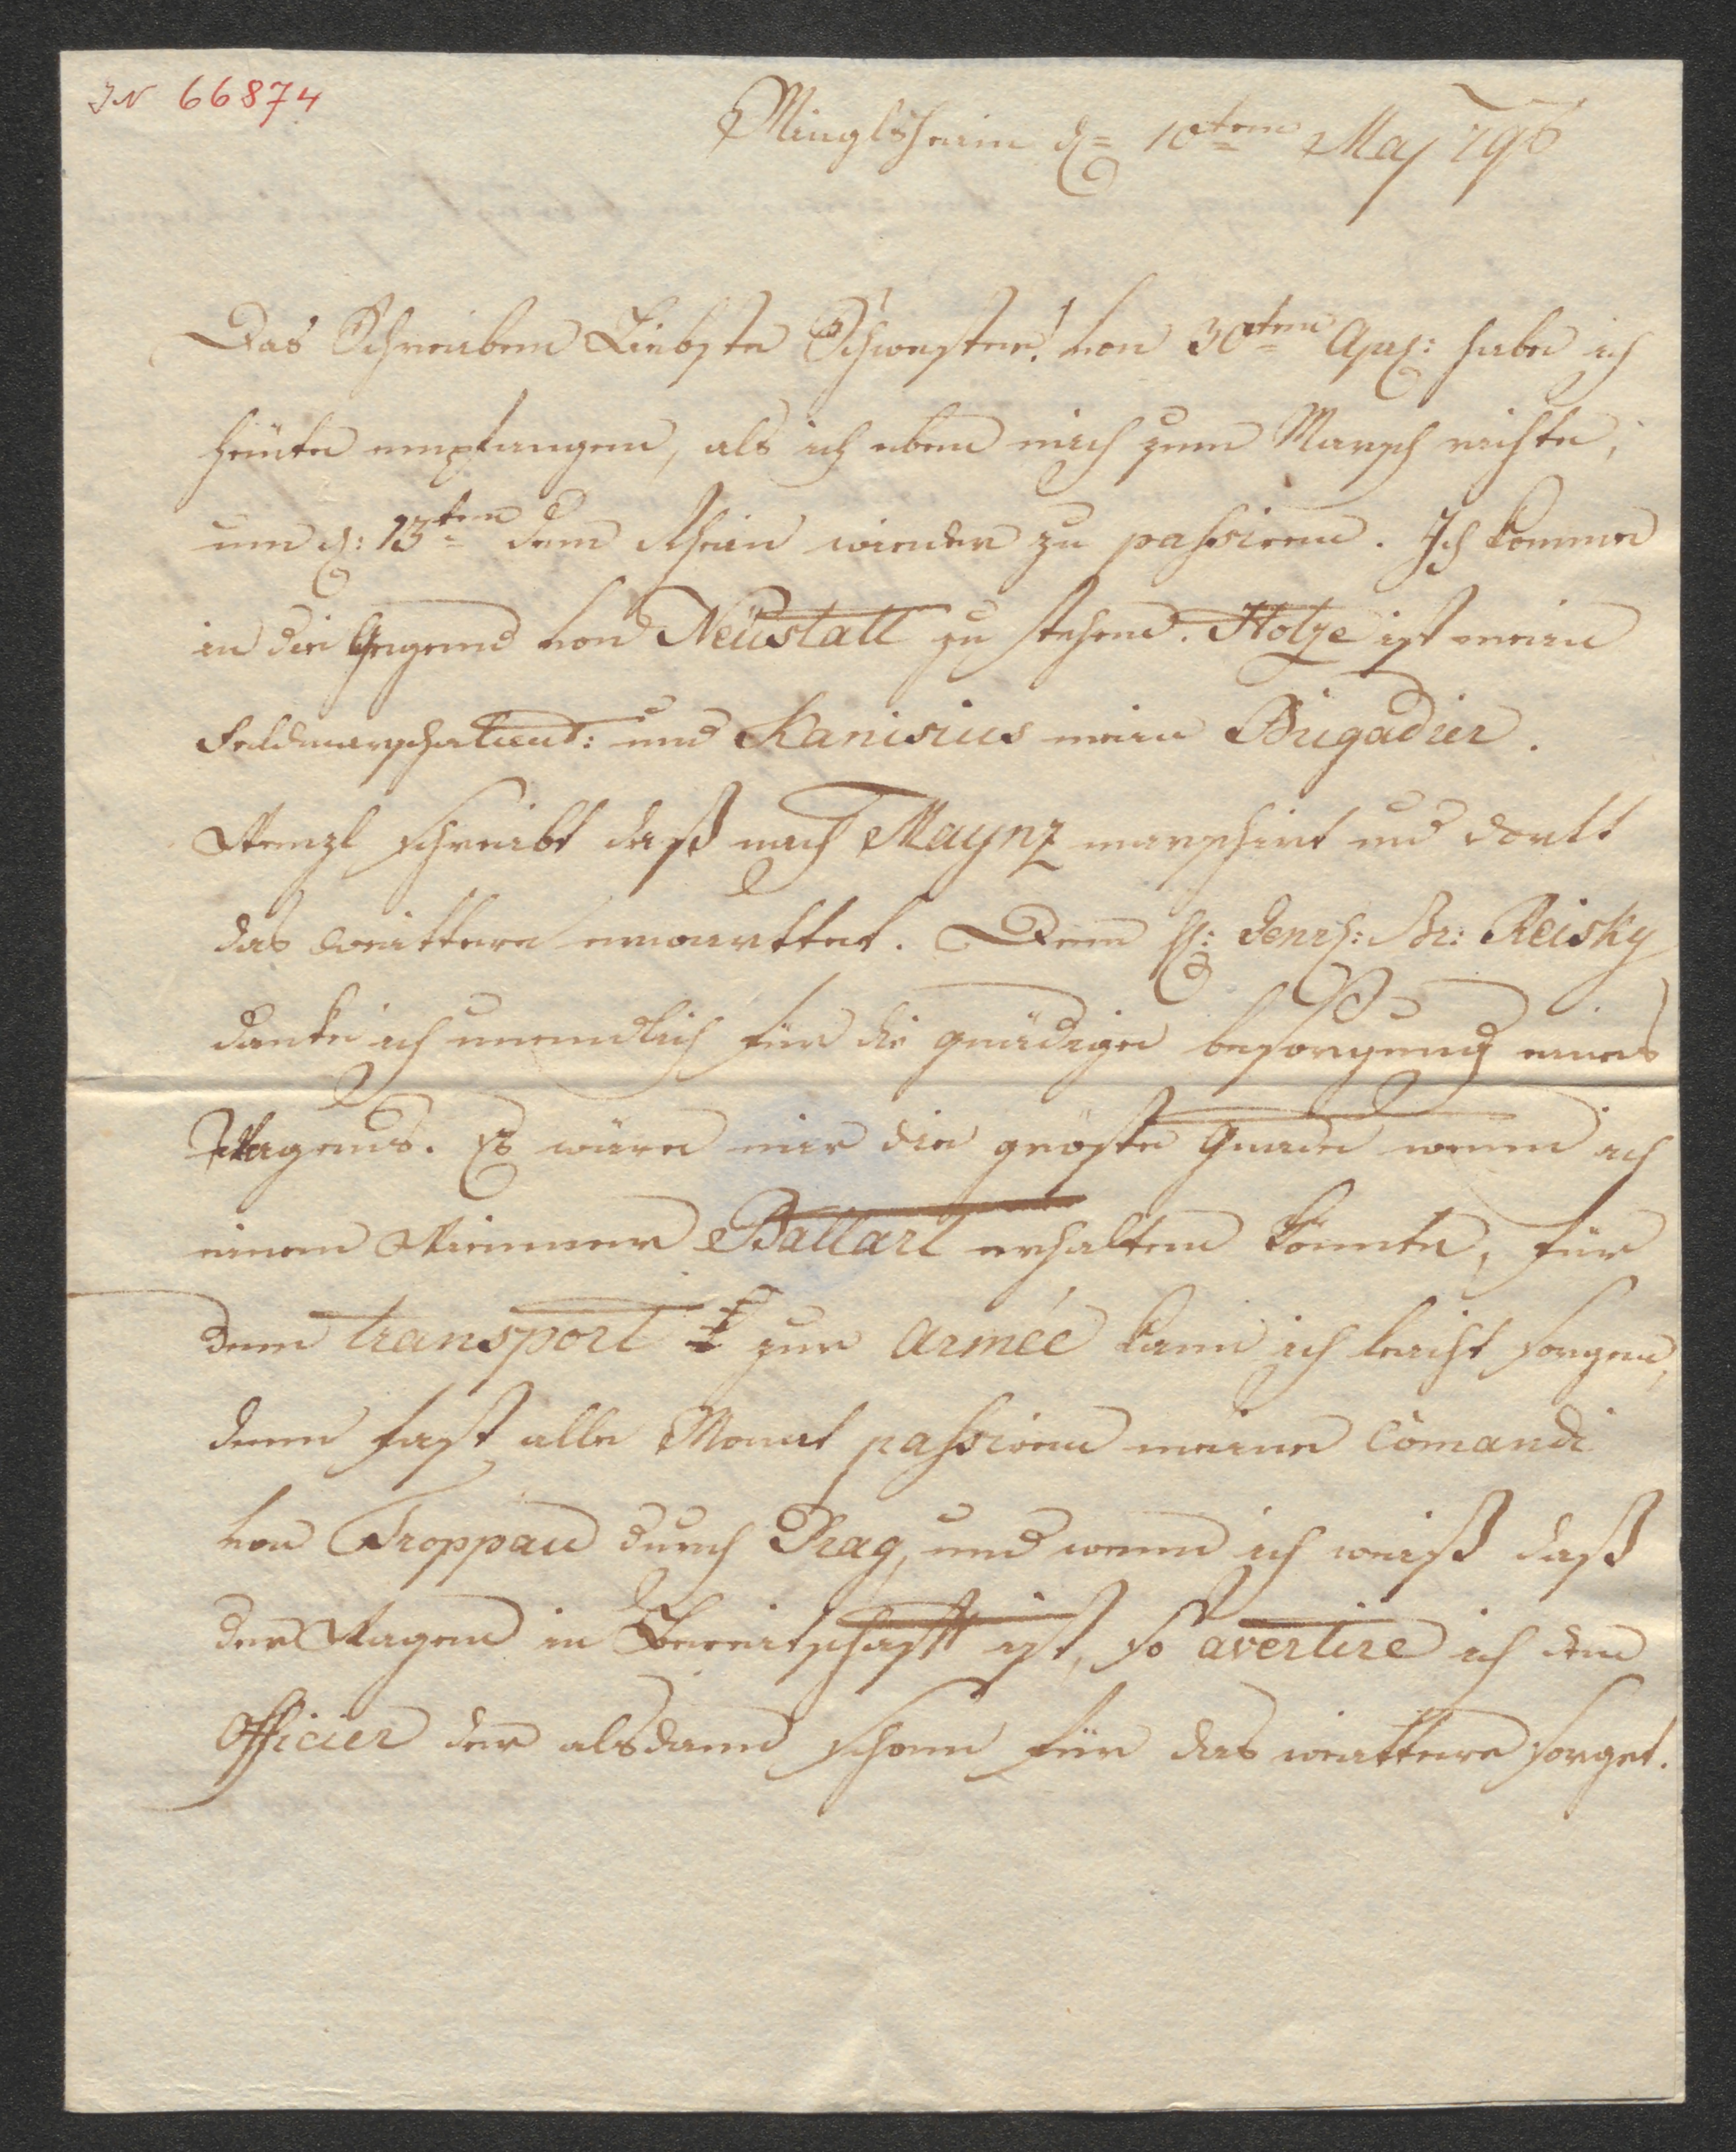 IN 66874
Minglsheim d= 10ten Maj 796
Das Schreiben Liebste Schwester! von 30ten Apri: habe ich
heüte empfangen, als ich eben mich zum Marsch richte,
um d: 13ten den Rhein wieder zu passiren. Ich komme
in die Gegend von Neüstatt zu stehen. Hotze ist mein
Feldmarschalieut: und Kanisius mein Brigadier.
Wenzl schreibt daß nach Maynz marschirt und dortt
das weittere erwarttet. Dem H: Br: Reisky
danke ich unendlich für die gnädige besorgung eines
Wagens. Es wäre mir die gröste Gnade wenn ich
einen Wienner Battart erhalten könnte, für
den transport zur Armée kann ich leicht sorgen,
denn fast alle Monat passiren meine Comandi
von Troppau durch Prag, und wenn ich weiß daß
der Wagen in Bereitschafft ist, so avertire ich den
Officier der alsdann schon für das weittere sorget.